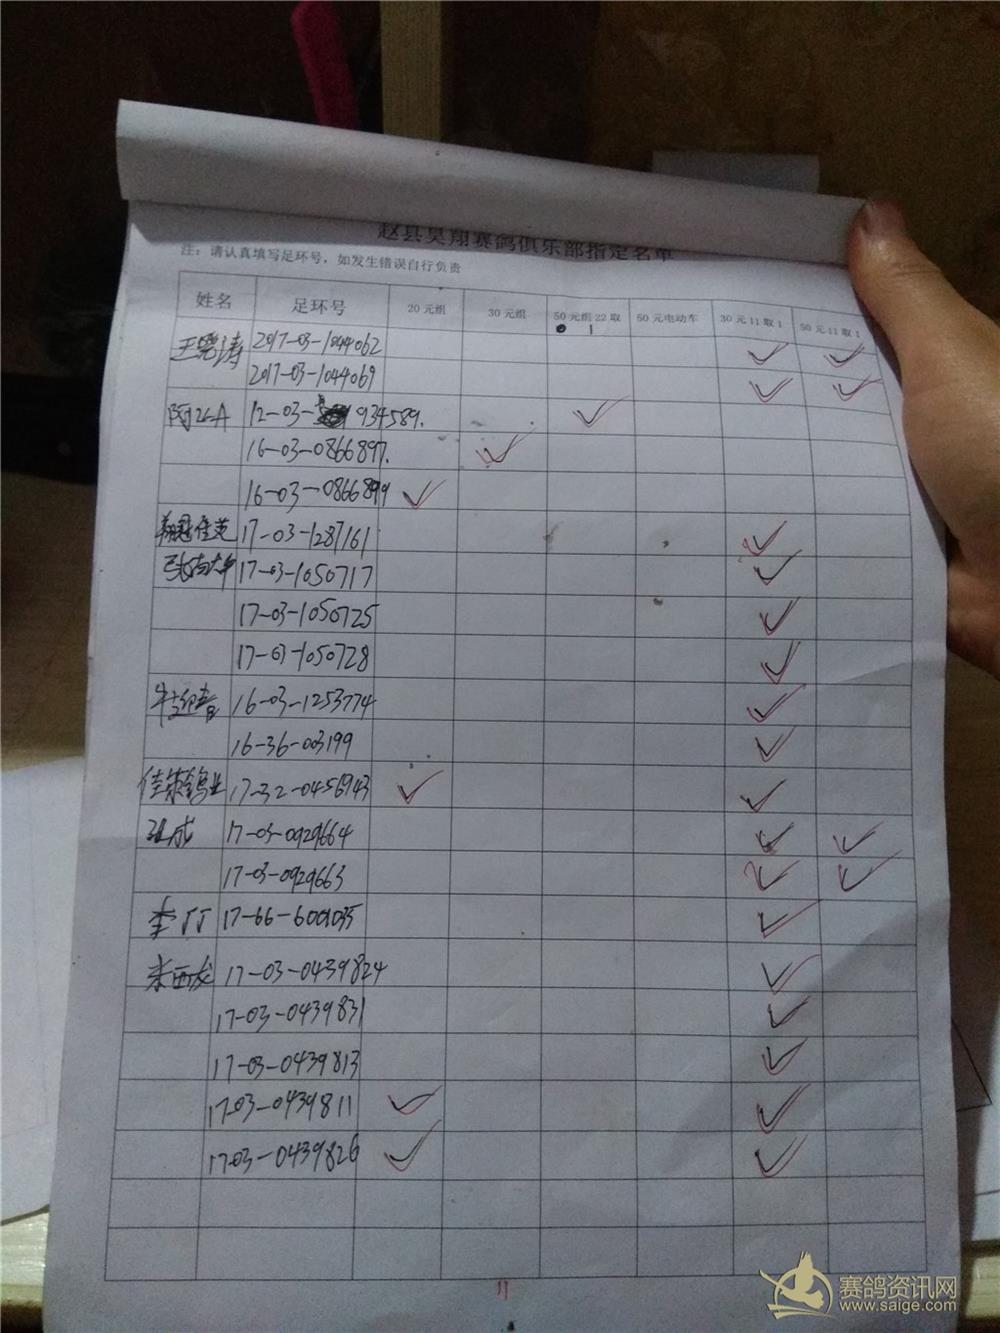 赵县昊翔赛鸽俱乐部指定名单
注：请认真填写足环号，如发生错误自行负责
姓名 足环号 20元组 30元组 50元组22取1 50元电动车 30元11取1 50元11取1
2017-03-1044062 ✓ ✓
2017-03-1044069 ✓ ✓
12-03- 934589. ✓
16-03-0866897. ✓
16-03-0866899 ✓
17-03-1287161 ✓
17-03-1050717 ✓
17-03-1050725 ✓
17-03-1050728 ✓
16-03-1253774 ✓
16-36-003199 ✓
17-32-0456943 ✓ ✓
17-03-0929664 ✓ ✓
17-03-0929663 ✓ ✓
李丁丁 17-66-6001035 ✓
米西龙 17-03-0439824 ✓
17-03-0439831 ✓
17-03-0439813 ✓
17-03-0439811 ✓ ✓
17-03-0439826 ✓ ✓
11
赛鸽资讯网
www.saige.com